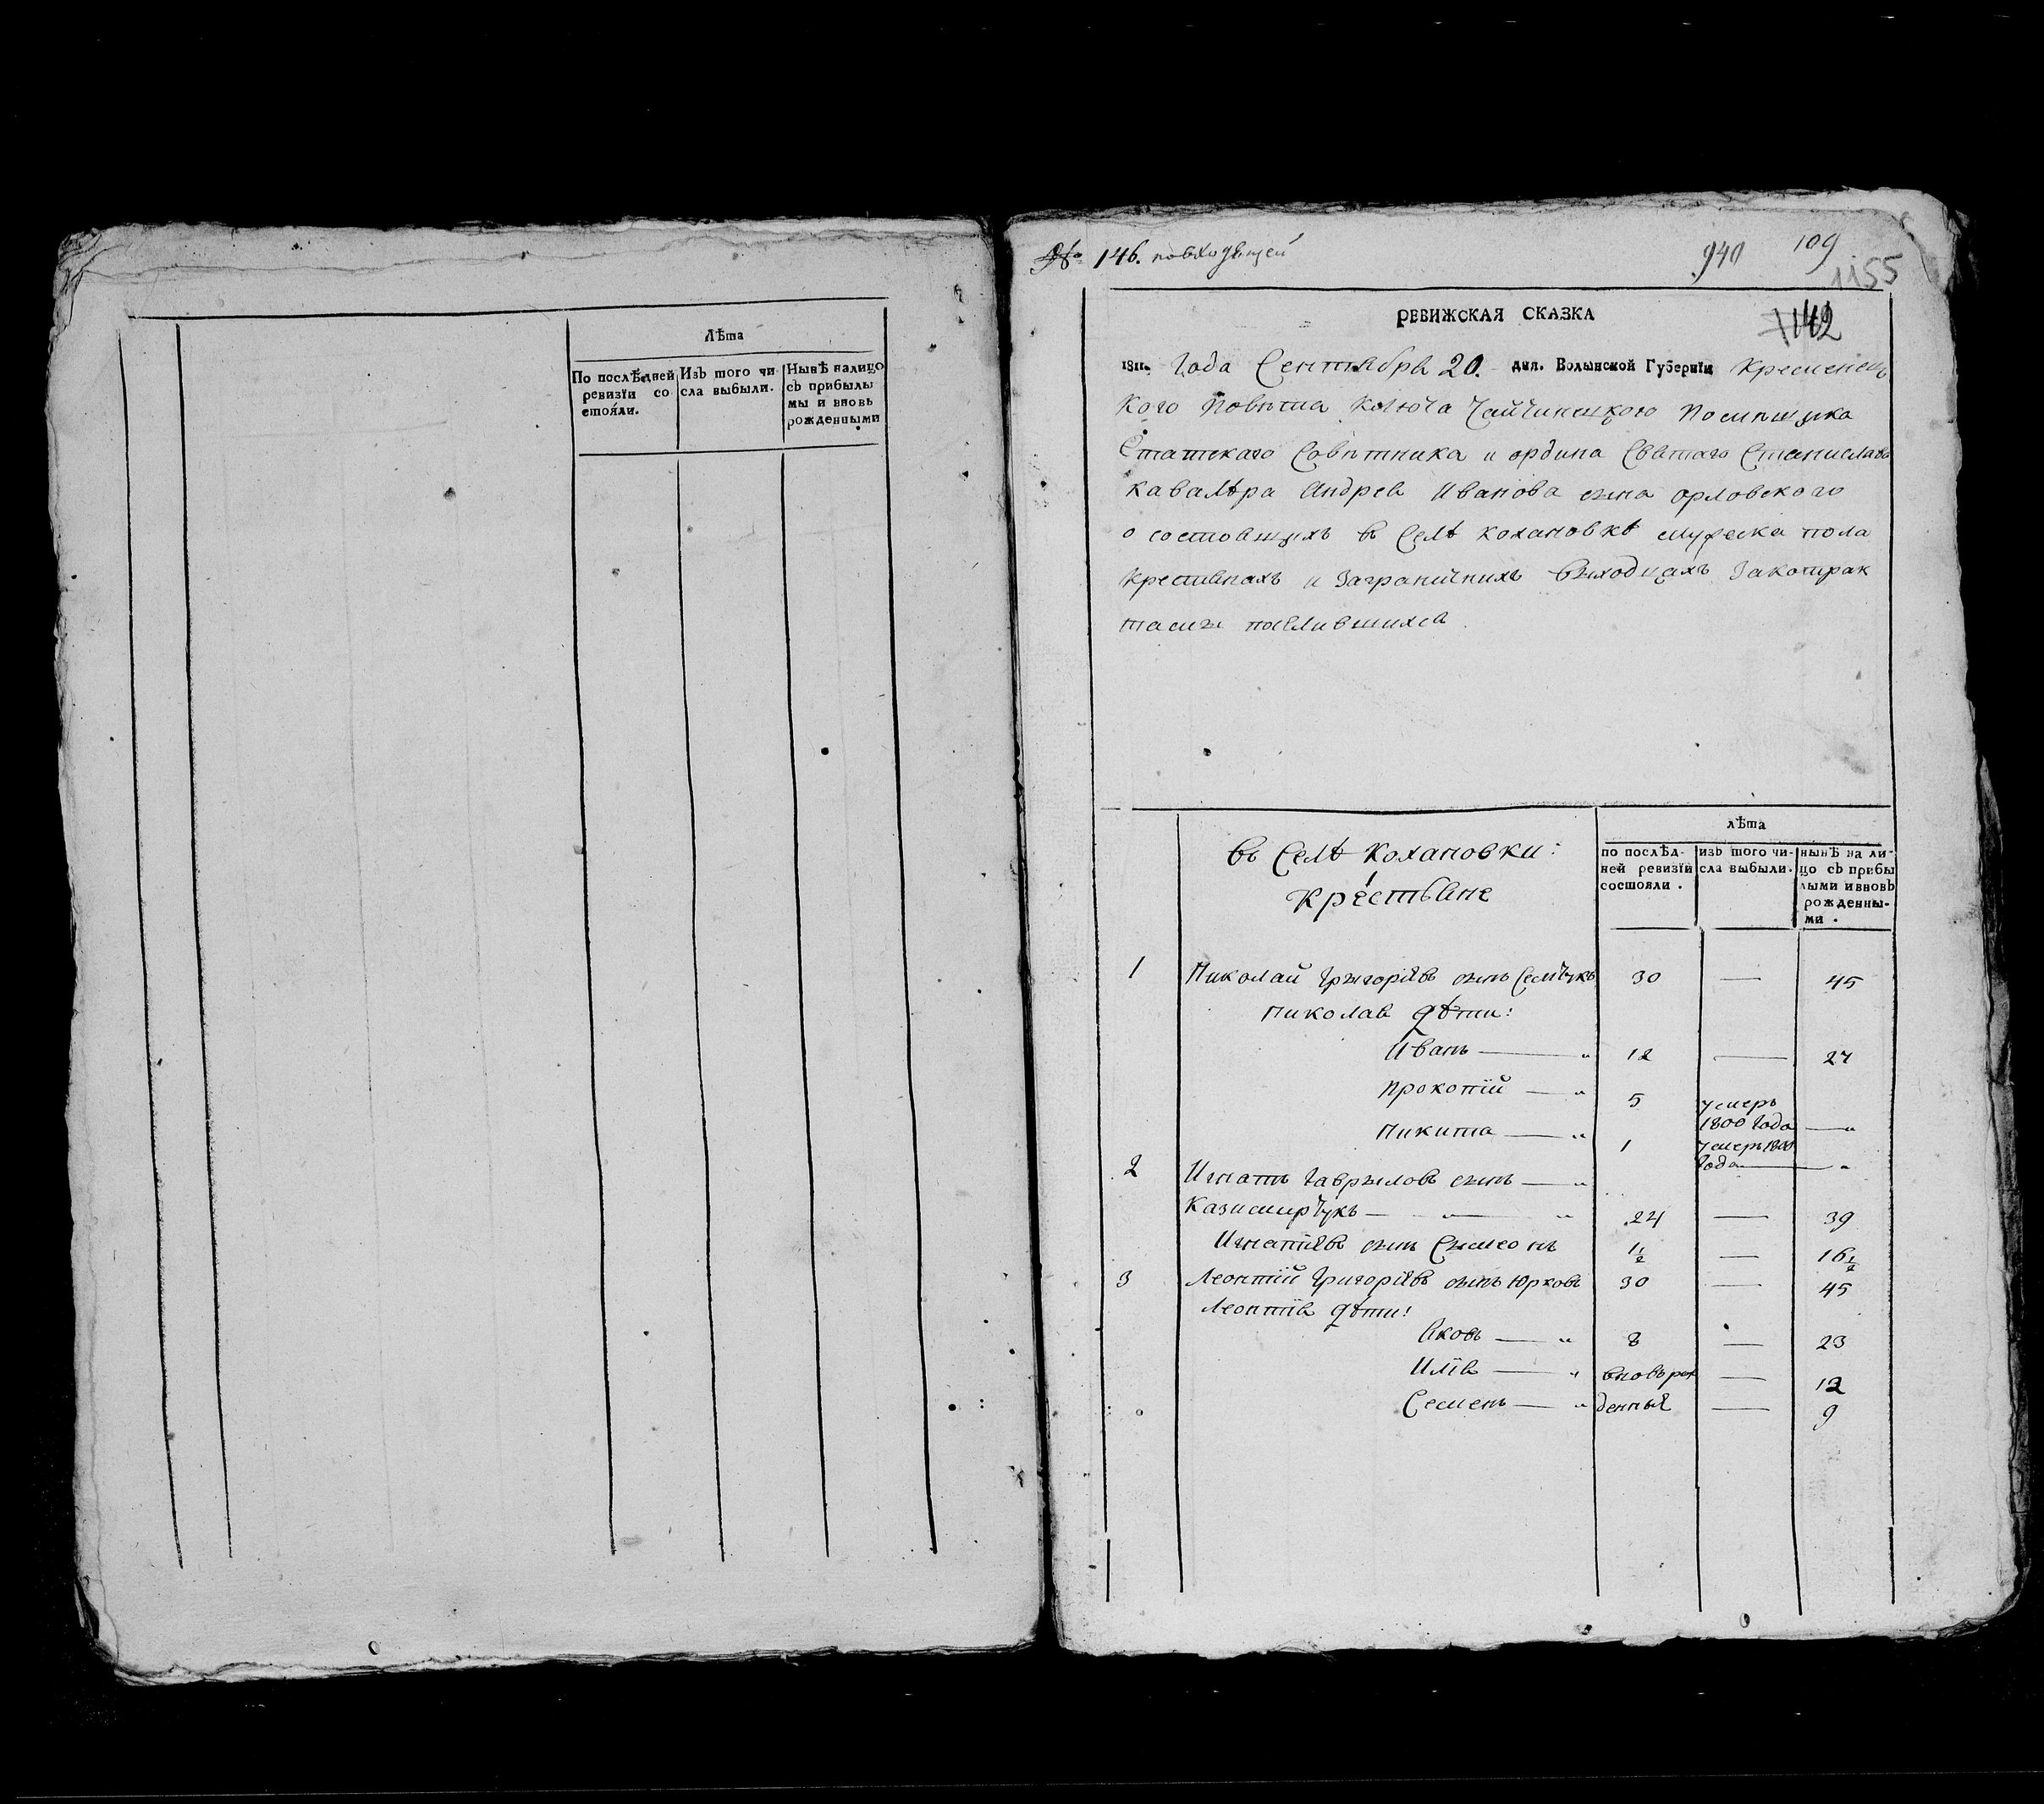 Лѣта
По послѣдней ревизїи со стояли.
Изъ того чи сла выбыли.
Нынѣ налицо съ прибылы мы и вновь рожденными
№ 146. повходящей
940 109
1155
142
РЕВИЖСКАЯ СКАЗКА
1811. Года Сентября 20. дня. Волынской Губернїи Кременец
кого Повѣта Ключа Чайчинецкого Помѣщика
Статскаго Совѣтника и ордина Святаго Станислава
кавалѣра Андрея Иванова сына орловского
о состоящихъ въ Селѣ кохановкѣ мужеска пола
крестянахъ и Заграничнихъ выходцахъ Законтрак
тами поселившихся
въ Селѣ Кохановки:
крестьяне
лѣта
по послѣд- ней ревизїи состояли.
изъ того чи- сла выбыли.
нынѣ на ли- цо съ прибы лыми ивновь рожденны- ми.
1 Николай Григорїевъ сынъ Семчукъ 30 — 45
Николая дѣти:
Иванъ — " 12 — 27
Прокопїй — " 5 умеръ 1800 Года — "
Никита — " 1 умеръ Года — "
2 Игнатъ Гаврыловъ сынъ — "
Казимирчукъ — " 24 — 39
Игнатїевъ сынъ Сымеонъ 1½ — 16½
3 Леонтїй Григорїевъ сынъ Юрковъ 30 — 45
Леонтїя дѣти:
Яковъ — " 8 — 23
Илїя — " вновьрож — 12
Семенъ — " денные — 9